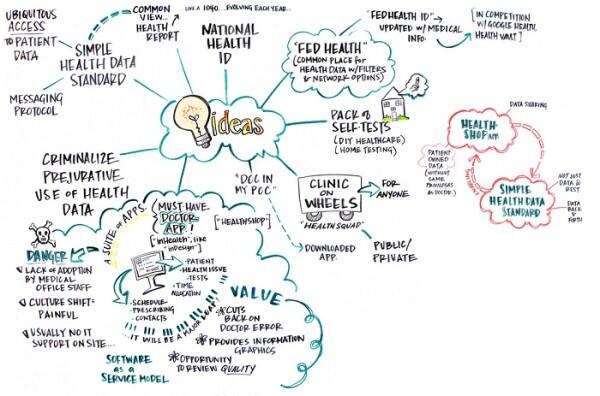 UBIQUITOUS
ACCESS
TO PATIENT
DATA
SIMPLE
HEALTH DATA
STANDARD
MESSAGING
PROTOCOL
COMMON
VIEW...
HEALTH
REPORT
LIKE A 1040... EVOLVING EACH YEAR...
NATIONAL
HEALTH
ID
"FED HEALTH"
(COMMON PLACE for
HEALTH DATA W/FILTERS
& NETWORK OPTIONS)
"FEDHEALTH ID"
UPDATED W/MEDICAL
INFO.
[IN COMPETITION
W/GOOGLE HEALTH,
HEALTH VAULT]
ideas
PACK of
SELF-TESTS
(DIY HEALTHCARE)
(HOME TESTING)
DATA SHARING
HEALTH-
SHOP APP.
PATIENT-
OWNED
DATA
(WITHOUT
SAME
PRIVILEGES
AS DOCTOR)
SIMPLE
HEALTH DATA
STANDARD
NOT JUST
DATA @
REST
DATA
BACK &
FORTH
CRIMINALIZE
PREJURATIVE
USE OF HEALTH
DATA
"DOC IN
MY POC"
CLINIC
ON
WHEELS
"HEALTH SQUAD"
FOR
ANYONE
PUBLIC/
PRIVATE
DOWNLOADED
APP.
A SUITE of APPS
MUST HAVE
DOCTOR
APP!
["inHealth", like
"inDesign"]
["HEALTHSHOP"]
DANGER
LACK OF ADOPTION
BY MEDICAL
OFFICE STAFF
CULTURE SHIFT=
PAINFUL
USUALLY NO IT
SUPPORT ON SITE...
• PATIENT
• HEALTH ISSUE
• TESTS
• TIME
ALLOCATION
• SCHEDULE
• PRESCRIBING
• CONTACTS
IT WILL BE A MAJOR LEAP!
VALUE
CUTS
BACK ON
DOCTOR ERROR
PROVIDES INFORMATION
GRAPHICS
OPPORTUNITY
TO REVIEW QUALITY
SOFTWARE
as a
SERVICE MODEL